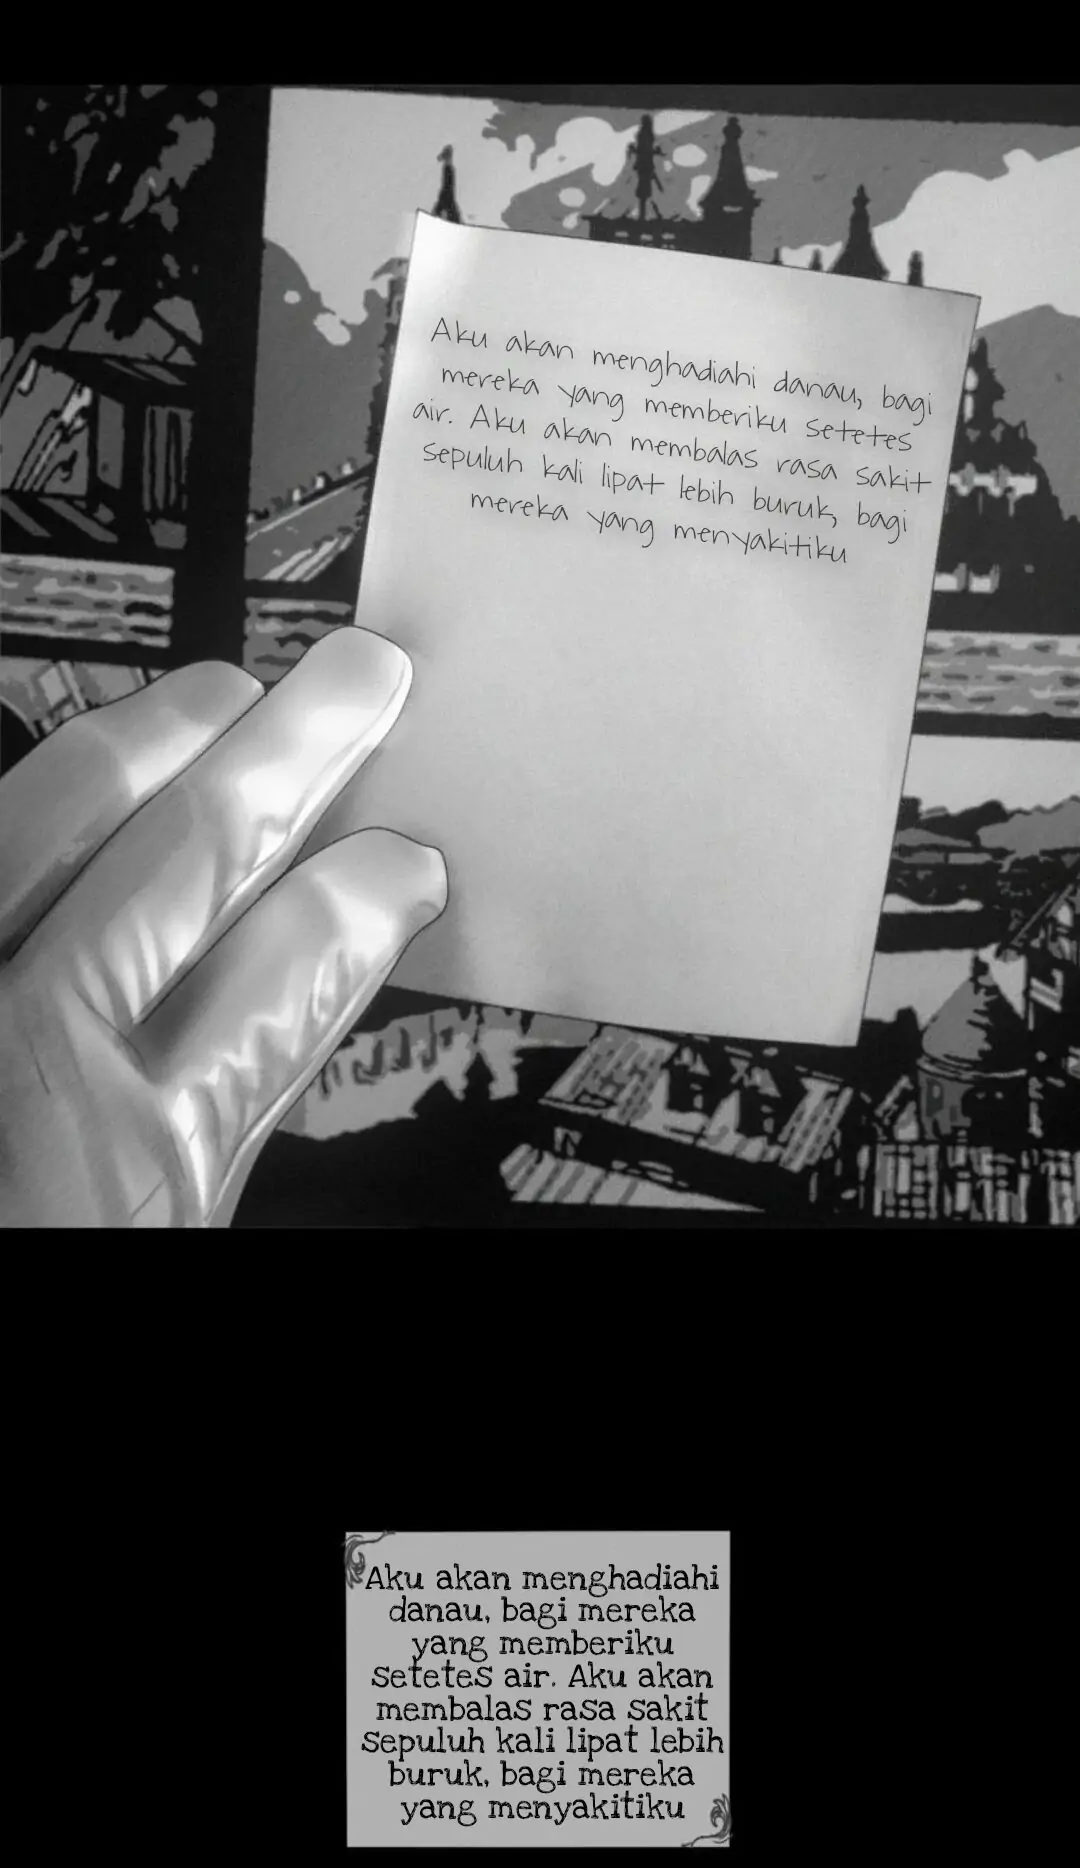 Aku akan menghadiahi danau, bagi
mereka yang memberiku setetes
air. Aku akan membalas rasa sakit
sepuluh kali lipat lebih buruk, bagi
mereka yang menyakitiku
Aku akan menghadiahi
danau, bagi mereka
yang memberiku
setetes air. Aku akan
membalas rasa sakit
sepuluh kali lipat lebih
buruk, bagi mereka
yang menyakitiku